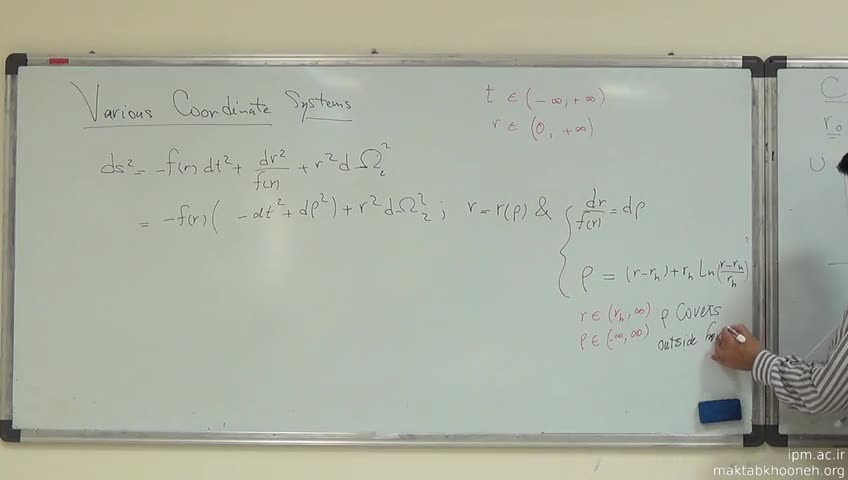 Various Coordinate Systems
t ∈ (-∞, +∞)
r ∈ (0, +∞)
ds² = -f(r) dt² + dr²/f(r) + r² dΩ₂²
= -f(r) ( -dt² + dρ² ) + r² dΩ₂² ; r = r(ρ) & { dr/f(r) = dρ
ρ = (r-r_h) + r_h Ln(r-r_h/r_h)
r ∈ (r_h, ∞) ρ Covers
ρ ∈ (-∞, ∞) outside
C
r₀
U
ipm.ac.ir
maktabkhooneh.org